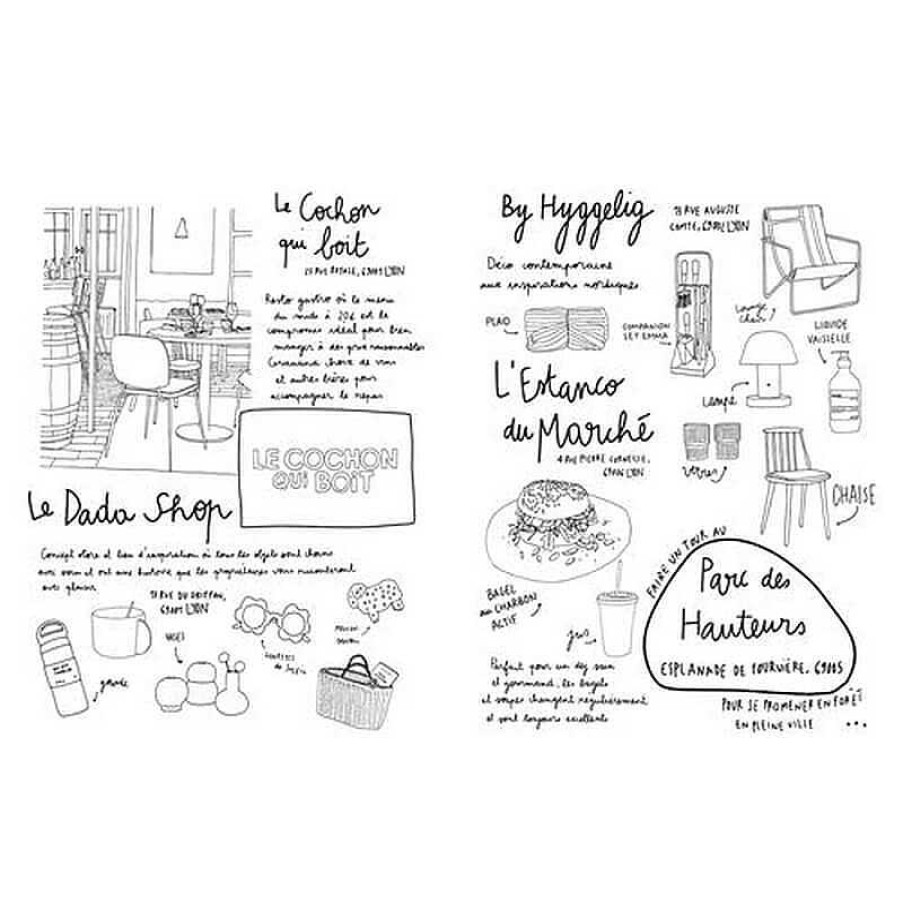 Le Cochon
qui boit
RUE ROYALE, 69001 LYON
Resto gastro où le menu
du midi à 20€ est le
compromis idéal pour bien
manger à des prix raisonnables
choix de vins
et autres bières pour
accompagner le repas
LE COCHON
QUI BOIT
Le Dada Shop
Concept store et lieu d'inspiration où tous les objets sont choisis
avec soin et ont une histoire que les propriétaires vous raconteront
avec plaisir
RUE DU GRIFFON,
69001 LYON
gourde
VASES
By Hyggelig
RUE AUGUSTE
COMTE, 69002 LYON
Déco contemporaine
aux inspirations nordiques
PLAID
COMPANION
SET EMMA
Lounge
chair
LIQUIDE
VAISSELLE
Lampe
verres
CHAISE
L'Estanco
du Marché
4 RUE PIERRE CORNEILLE,
LYON
BAGEL
AU CHARBON
ACTIF
jus
Parfait pour un déj sain
et gourmand, les bagels
et soupes changent régulièrement
et sont toujours excellents
FAIRE UN TOUR AU
Parc des
Hauteurs
ESPLANADE DE FOURVIÈRE, 69005
POUR SE PROMENER EN FORÊT
EN PLEINE VILLE ...